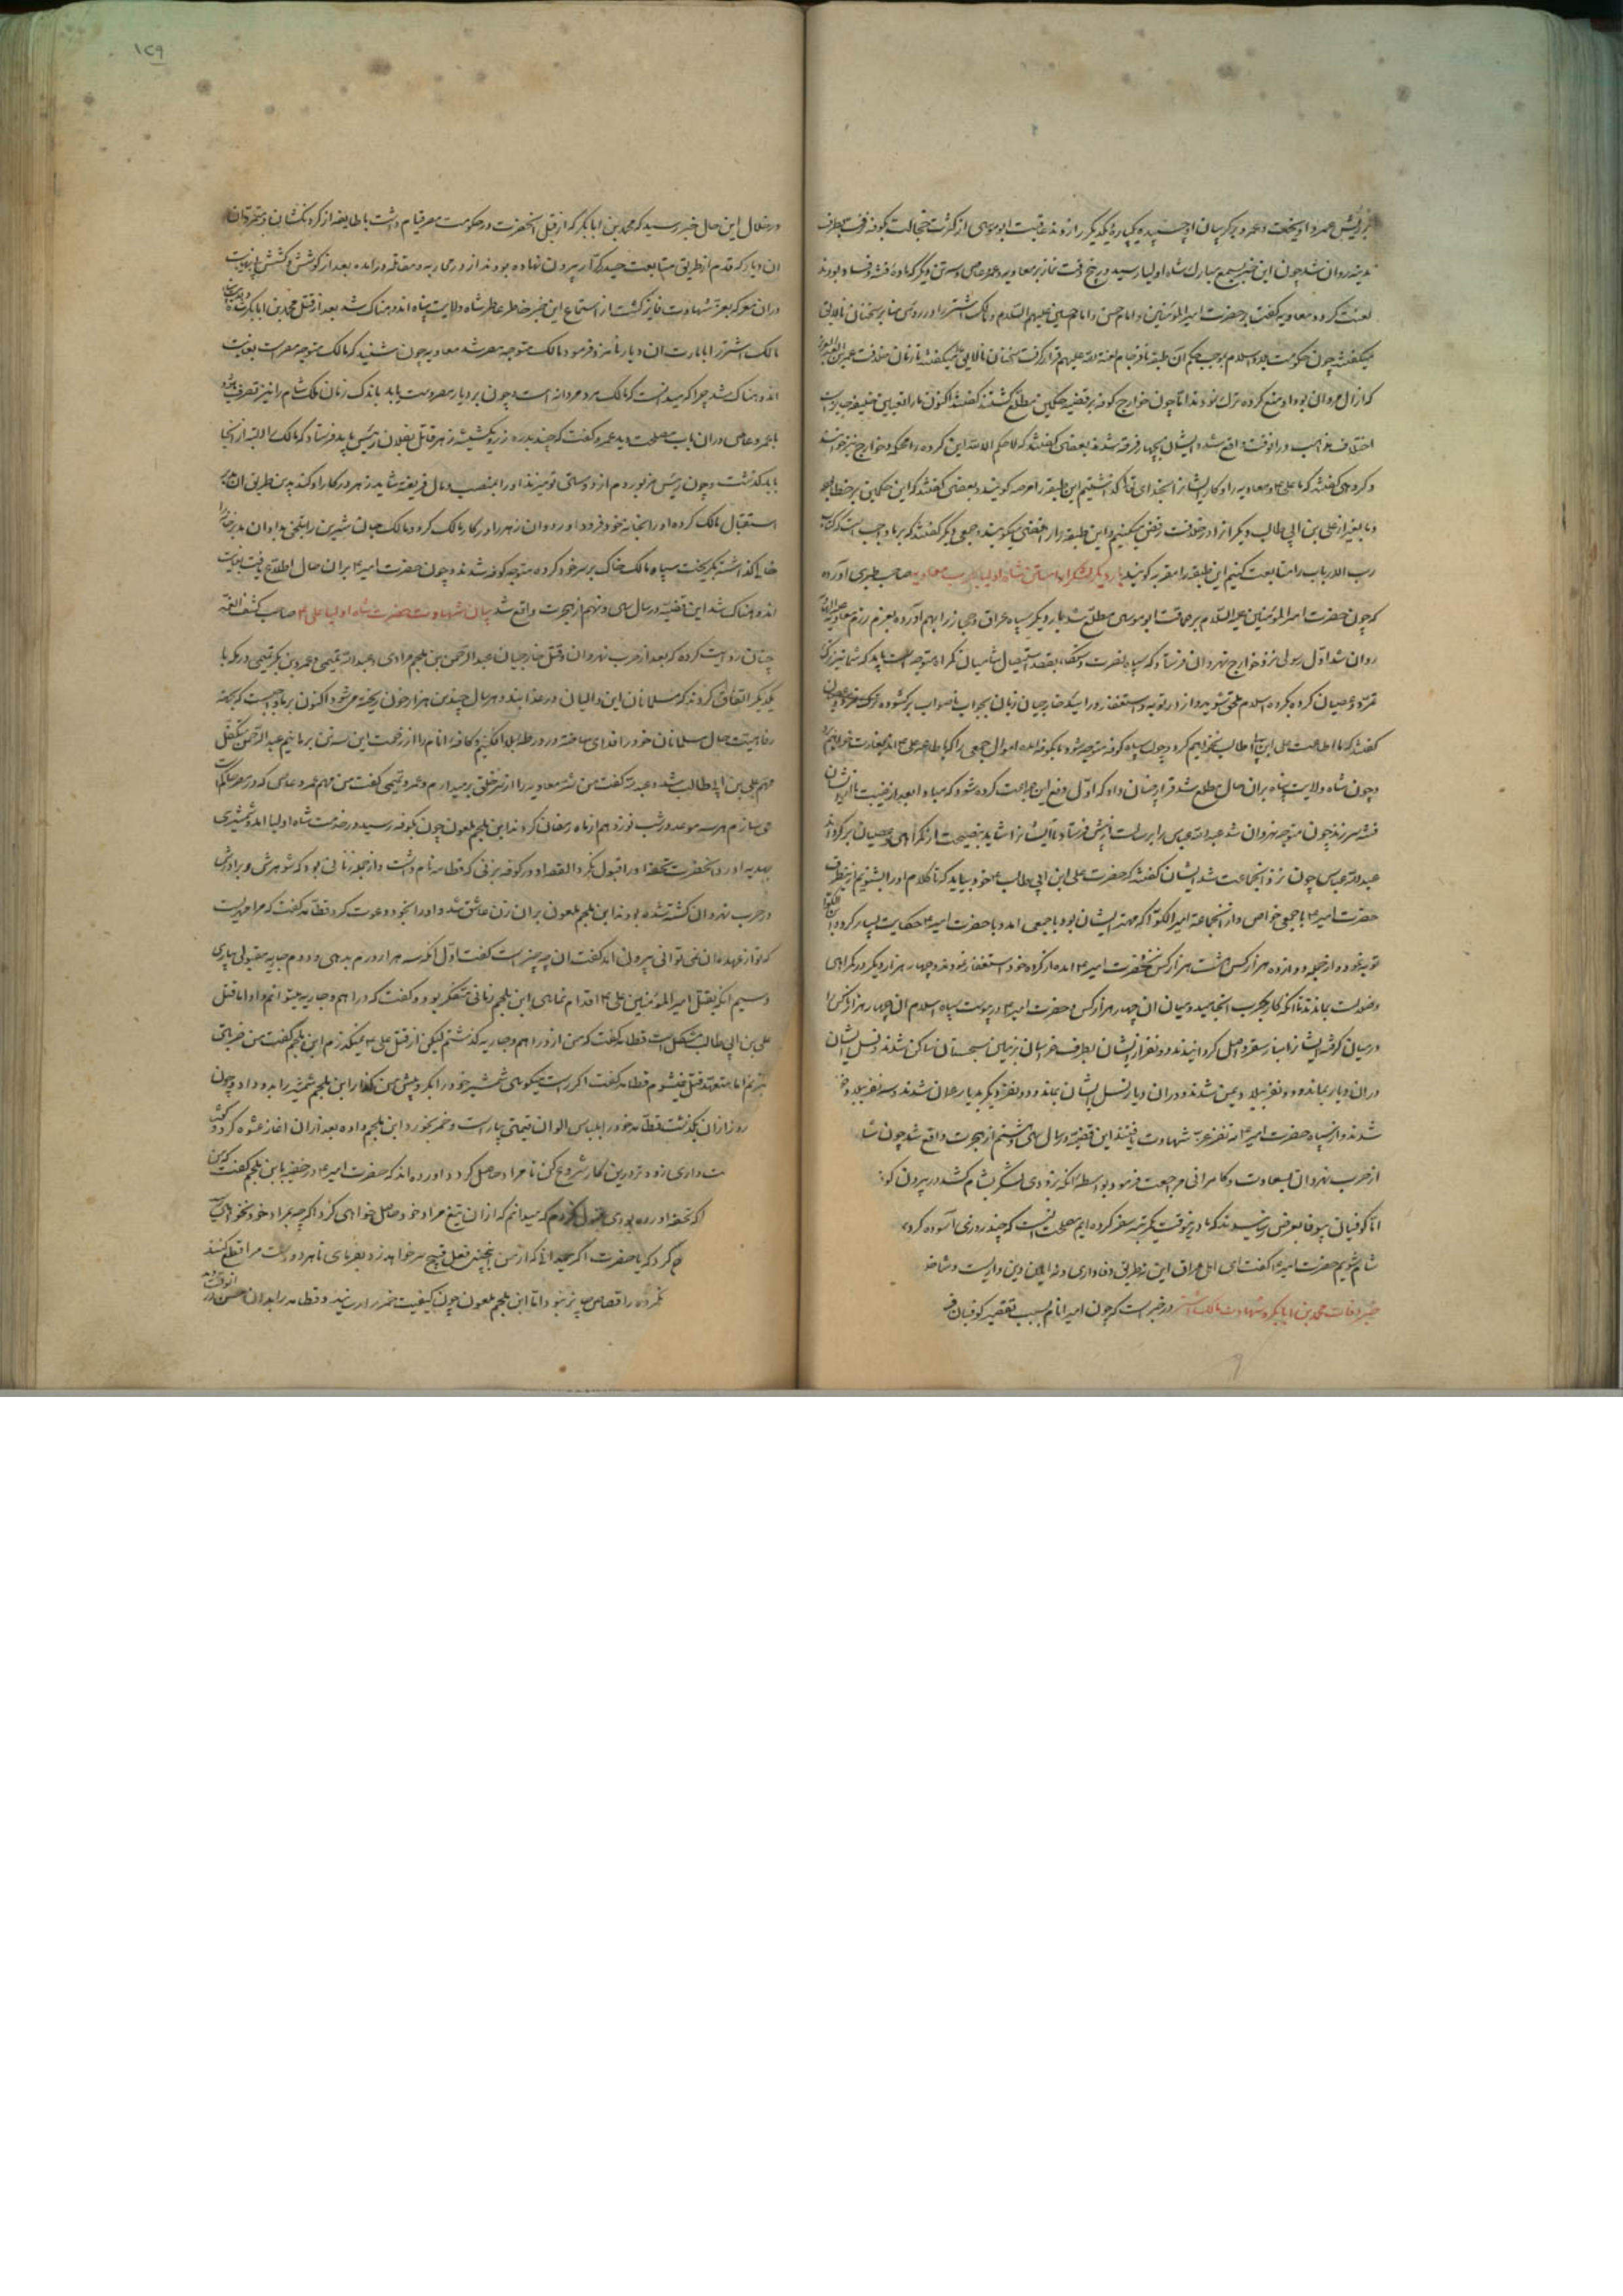 بریش عمرو آویخت و عمرو بر گریبان او چسپیده یکپاره یکدیگر را زدند عاقبت ابوموسی از کثرت خجالت بکوفه نرفت بطرف
مدینه روان شد چون این خبر بسمع مبارک شاه اولیا رسید در پنج وقت نماز بر معاویه و عمرو عاص و سه تن دیگر که ماده فتنه و فساد بودند
لعنت کرد و معاویه گفت بر حضرت امیرالمؤمنین و امام حسن و امام حسین علیهم السلام و مالک اشتر در روی منابر سخنان نالایق
میگفتند چون حکومت بلاد اسلام بموجب حکم آن طبقه نافرجام لعنة الله علیهم قرار گرفت سخنان نالایق میگفتند تا زمان خلافت عمر بن عبدالعزیز
که از آل مروان بود او منع کرده ترک نمودند اما چون خوارج کوفه بر قضیه حکمین مطلع گشتند گفتند اکنون ما را تعیین خلیفه
اختلاف مذاهب در آنوقت واقع شد و ایشان بچهار فرقه شدند بعضی گفتند که لا حکم الا لله این گروه را محکمه و خوارج نیز خوانند
و گروهی گفتند که ما علی ع و معاویه را و کار ایشان را بخدای تعالی گذاشتیم این طبقه را مرجئه گویند و بعضی گفتند که این حکمین بر خطااند
و ما بغیر از علی بن ابی طالب دیگر انرا در خلافت رفض میکنیم و این طبقه را رافضی میگویند و جمعی دیگر گفتند که بر ما واجب است که کتاب
رب الارباب را متابعت کنیم این طبقه را مقریه گویند بار دیگر لشکر آراستن شاه اولیا بحرب معاویه صاحب طبری آورده
که چون حضرت امیرالمؤمنین علیه السلام بر حماقت ابوموسی مطلع شد بار دیگر سپاه عراق و حجاز را بهم آورده بعزم رزم معاویه
روان شد اول رسولی نزد خوارج نهروان فرستاد که سپاه نصرت دستگاه بقصد استیصال شامیان گمراه متوجه است باید که شما نیز ترک
تمرد و عصیان کرده بگروه اسلام ملحق شوید و از در توبه و استغفار در آیید خارجیان زبان بجواب ناصواب برگشوده
گفتند که ما اطاعت علی ابن ابی طالب نخواهیم کرد و چون سپاه کوفه متوجه شود ما بکوفه آمده اموال جمعی را که باطاعت علی ع اند بغارت خواهیم برد
و چون شاه ولایت پناه بران حال مطلع شد قرار چنان داد که اول دفع این جماعت کرده شود که مبادا بعد از غیبت ما از ایشان
فتنه سر زند چون متوجه نهروان شد عبدالله عباس را برسالت نزدش فرستاد تا ایشانرا شاید بنصیحت از گمراهی و عصیان برگرداند
عبدالله عباس چون نزد آنجماعت شد ایشان گفتند که حضرت علی ابن ابی طالب ع خود بیاید که تا کلام او را بشنویم از نیطرف
حضرت امیر ع با جمعی خواص و از آنجماعه امیر الکوا که مهتر ایشان بود با جمعی آمد و با حضرت امیر ع حکایت بسیار کرد و ابن الکوا
توبه نمود و از جمله دوازده هزار کس هشت هزار کس بحضرت امیر ع آمده از گناه خود استغفار نمودند و چهار هزار دیگر در گمراهی
و ضلالت بماندند تا آنکه کار بحرب انجامید و میان آن چهار هزار کس و حضرت امیر ع در پیوست سپاه اسلام آن چهار هزار ناکس را
در میان گرفته ایشانرا بنار سقر واصل گردانیدند و دو نفر از ایشان بطرف خراسان بزمین سجستان ساکن شدند و نسل ایشان
دران دیار بماند و دو نفر ببلاد یمن شدند و دران دیار نسل ایشان بماند و دو نفر دیگر بدیار عمان شدند و سه نفر ببلاد
شدند و از سپاه حضرت امیر ع نه نفر بعز شهادت یافتند این قضیه در سال سی و هشتم از هجرت واقع شد چون شاه
از حرب نهروان بسعادت و کامرانی مراجعت فرمود بواسطه آنکه بزودی لشکر بشام کشد در بیرون کوفه
اما کوفیان بیوفا بعرض رسانیدند که ما درینوقت یکمرتبه سفر کرده ایم مصلحت آنست که چند روزی آسوده گردیم
شام شویم حضرت امیر ع گفت ای اهل عراق این نه طریق وفاداری و نه آیین دین داریست
خبر وفات محمد بن ابابکر و شهادت مالک اشتر در خبر است که چون امیر انام بسبب تقصیر کوفیان
۱۲۹
در خلال این حال خبر رسید که محمد بن ابابکر که از قبل آنحضرت در حکومت مصر قیام داشت با طایفه از گردنکشان و متمردان
آن دیار که قدم از طریق متابعت حیدر کرار بیرون نهاده بودند از در محاربه و مقاتله در آمده بعد از کوشش و کشش بی نهایت
دران معرکه بعز شهادت فایز گشت از استماع این خبر خاطر عاطر شاه ولایت پناه اندوهناک شد بعد از قتل محمد بن ابابکر
مالک اشتر را بامارت آن دیار نامزد فرمود مالک متوجه مصر شد معاویه چون شنید که مالک متوجه مصر است بغایت
اندوهناک شد چرا که میدانست که مالک مرد مردانه است و چون بر دیار مصر دست یابد باندک زمان ملک شام را نیز تصرف
با عمرو عاص دران باب مصلحت دید عمرو گفت که چند بدره زر و یکشیشه زهر قاتل بفلان رئیس باید فرستاد که مالک را البته از آنجا
باید گذشت و چون رئیس مزبور دم از دوستی تو میزند او را بمنصب و مال فریفته شاید زهر در کار او کند بدین طریق آن
استقبال مالک کرده او را بخانه خود فرود آورد و آن زهر را در کار مالک کرد و مالک جان شیرین را بتلخی بداد آن بدر
خانه گذاشته بگریخت سپاه مالک خاک بر سر خود کرده متوجه کوفه شدند و چون حضرت امیر ع بران حال اطلاع یافت بغایت
اندوهناک شد این قضیه در سال سی و نهم از هجرت واقع شد بیان شهادت حضرت شاه اولیا علی ع صاحب کشف الغمه
چنان روایت کرده که بعد از حرب نهروان و قتل خارجیان عبدالرحمن بن ملجم مرادی و عبدالله تمیمی و عمرو بن بکر تمیمی در مکه با
یکدیگر اتفاق کردند که مسلمانان ازین والیان در عذابند و هر سال چندین هزار خون ریخته میشود اکنون بر ما واجبست که بجهة
رفاهیت حال مسلمانان خود را فدای ساخته در ورطه بلا افکنیم و کافه انام را از زحمت این سه تن برهانیم عبدالرحمن متکفل
مهم علی بن ابی طالب شد و عبدالله گفت من شر معاویه را از سر خلق بر میدارم و عمرو تمیمی گفت من مهم عمرو عاص که در مصر حاکم است
می سازم هر سه موعد در شب نوزدهم از ماه رمضان کردند ابن ملجم ملعون چون بکوفه رسید در خدمت شاه اولیا آمد و شمشیری
بهدیه آورد آنحضرت تحفه او را قبول نکرد القصه او در کوفه بزنی که قطامه نام داشت و از جمله زنانی بود که شوهرش و برادرش
در حرب نهروان کشته شده بودند ابن ملجم ملعون بران زن عاشق شد و او را بخود دعوت کرد قطامه گفت که مرا مهریست
که تو از عهده آن نمی توانی بیرون آمد گفت آن چه چیز است گفت اول آنکه سه هزار درم بدهی و دوم جاریه مقبولی بیاری
و سیم آنکه بقتل امیرالمؤمنین علی ع اقدام نمایی ابن ملجم زمانی متفکر بود و گفت که دراهم و جاریه میتوانم داد اما قتل
علی بن ابی طالب مشکل است قطامه گفت که من از دراهم و جاریه گذشتم لیکن از قتل علی ع نمیگذرم ابن ملجم گفت من ضربتی
بزنم اما متعهد قتل نمیشوم قطامه گفت اگر راست میگویی شمشیر خود را بگرو پیش من بگذار ابن ملجم شمشیر را بدو داد و چون
روز از آن بگذشت قطامه خود را بلباس الوان قیمتی بیاراست و خمر بخورد ابن ملجم داده بعد از آن آغاز عشوه کرد و گفت
ت داری زودتر درین کار شروع کن تا مراد حاصل گردد و آورده اند که حضرت امیر ع در خفیه با ابن ملجم گفت که من
که تحفه آورده بودی قبول نکردم که میدانم که از ان تیغ مراد خود حاصل خواهی کرد اگر چه بمراد خود نخواهی
ع کرد که یا حضرت اگر میدانی که از من اینچنین فعل قبیح سر خواهد زد بفرمای تا هر دو دست مرا قطع کنند
نکرده را قصاص جایز نبود اما ابن ملجم ملعون چون کیفیت خمر در سر رسید و قطامه را بدان حسن